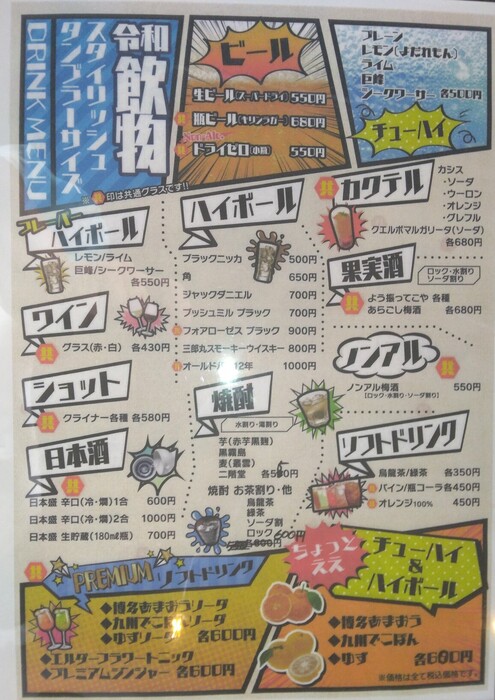 令和
飲物
スタイリッシュ
タンブラーサイズ
DRINK MENU
※共印は共通グラスです!!
ビール
生ビール(スーパードライ) 550円
瓶ビール(キリンラガー) 680円
ドライゼロ(小瓶) 550円
プレーン
レモン(よだれもん)
ライム
巨峰
シークワーサー 各500円
チューハイ
フレーバー
ハイボール
レモン/ライム
巨峰/シークワーサー
各550円
ワイン
共
グラス(赤・白) 各430円
ショット
共
クライナー各種 各580円
日本酒
共
日本盛 辛口(冷・燗)1合 600円
日本盛 辛口(冷・燗)2合 1000円
日本盛 生貯蔵(180ml瓶) 700円
ハイボール
ブラックニッカ 500円
角 650円
ジャックダニエル 700円
ブッシュミルズ ブラック 700円
フォアローゼス ブラック 900円
三郎丸スモーキーウイスキー 800円
オールドパー12年 1000円
焼酎
水割り・湯割り
芋(赤芋黒麹)
黒霧島
麦(叢雲)
二階堂 各550円
焼酎 お茶割り・他
烏龍茶
緑茶
ソーダ割
ロック 600円
共
カクテル
カシス
・ソーダ
・ウーロン
・オレンジ
・グレフル
クエルボマルガリータ(ソーダ)
各680円
果実酒
ロック・水割り
ソーダ割り
共
よう振ってこや 各種
あらごし梅酒 各680円
ノンアル
共
ノンアル梅酒 550円
[ロック・水割り・ソーダ割り]
ソフトドリンク
烏龍茶/緑茶 各350円
パイン/瓶コーラ 各450円
オレンジ100% 450円
共
PREMIUM ソフトドリンク
◆博多あまおうソーダ
◆九州でこぽんソーダ
◆ゆずソーダ 各600円
◆エルダーフラワートニック
◆プレミアムジンジャー 各600円
ちょっと
ええ
チューハイ
&
ハイボール
◆博多あまおう
◆九州でこぽん
◆ゆず 各600円
※価格は全て税込価格です。